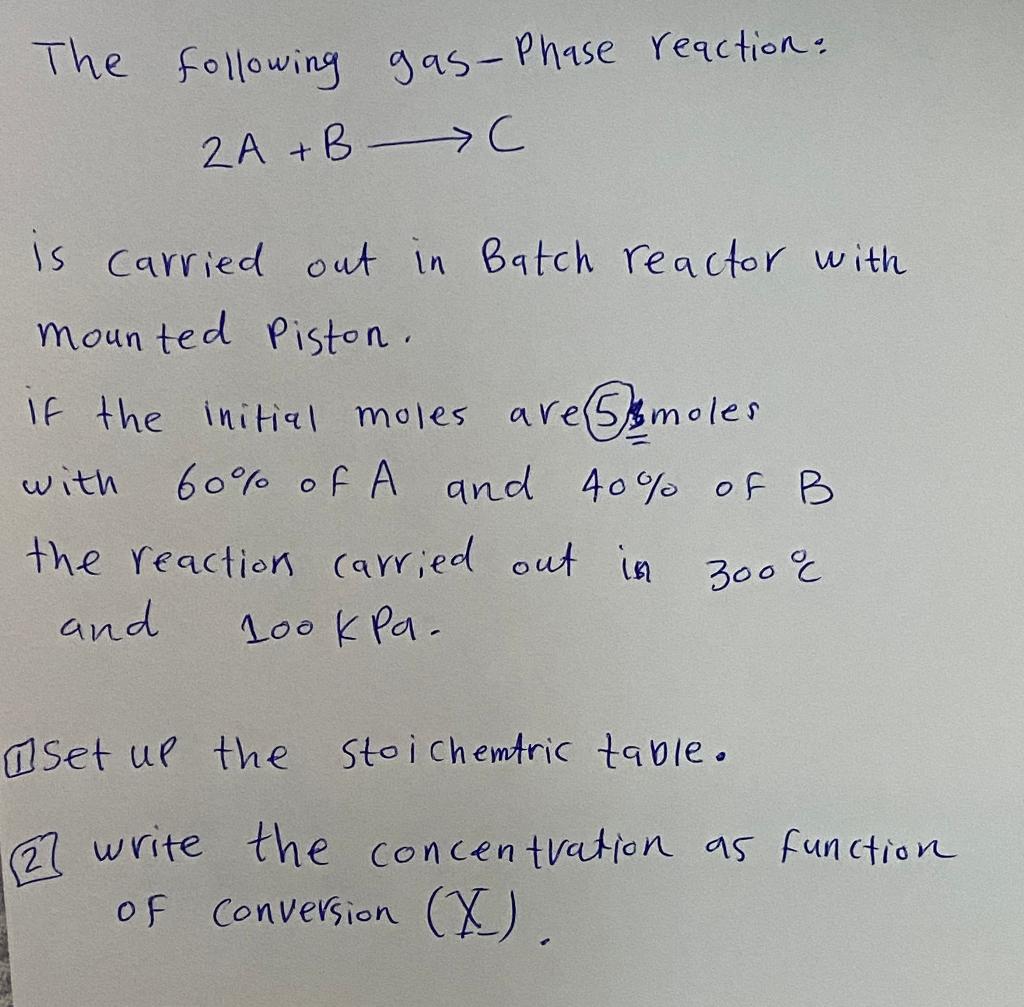 The following gas-Phase reaction:
2A + B ⟶ C
is carried out in Batch reactor with
mounted Piston.
if the initial moles are 5 moles
with 60% of A and 40% of B
the reaction carried out in 300 °C
and 100 KPa.
1 Set up the stoichemtric table.
2 write the concentration as function
of conversion (X).